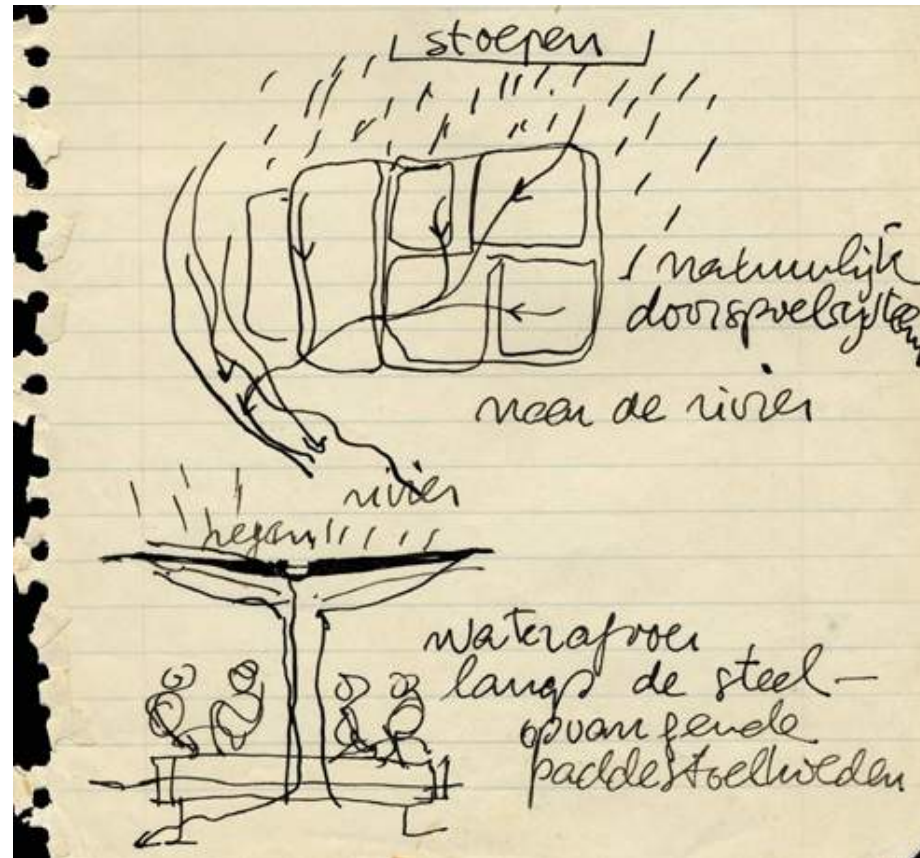 stoepen
natuurlijk
doorspoelsysteem
naar de rivier
rivier
regen
waterafvoer
langs de steel -
opvangende
paddestoelhoeden